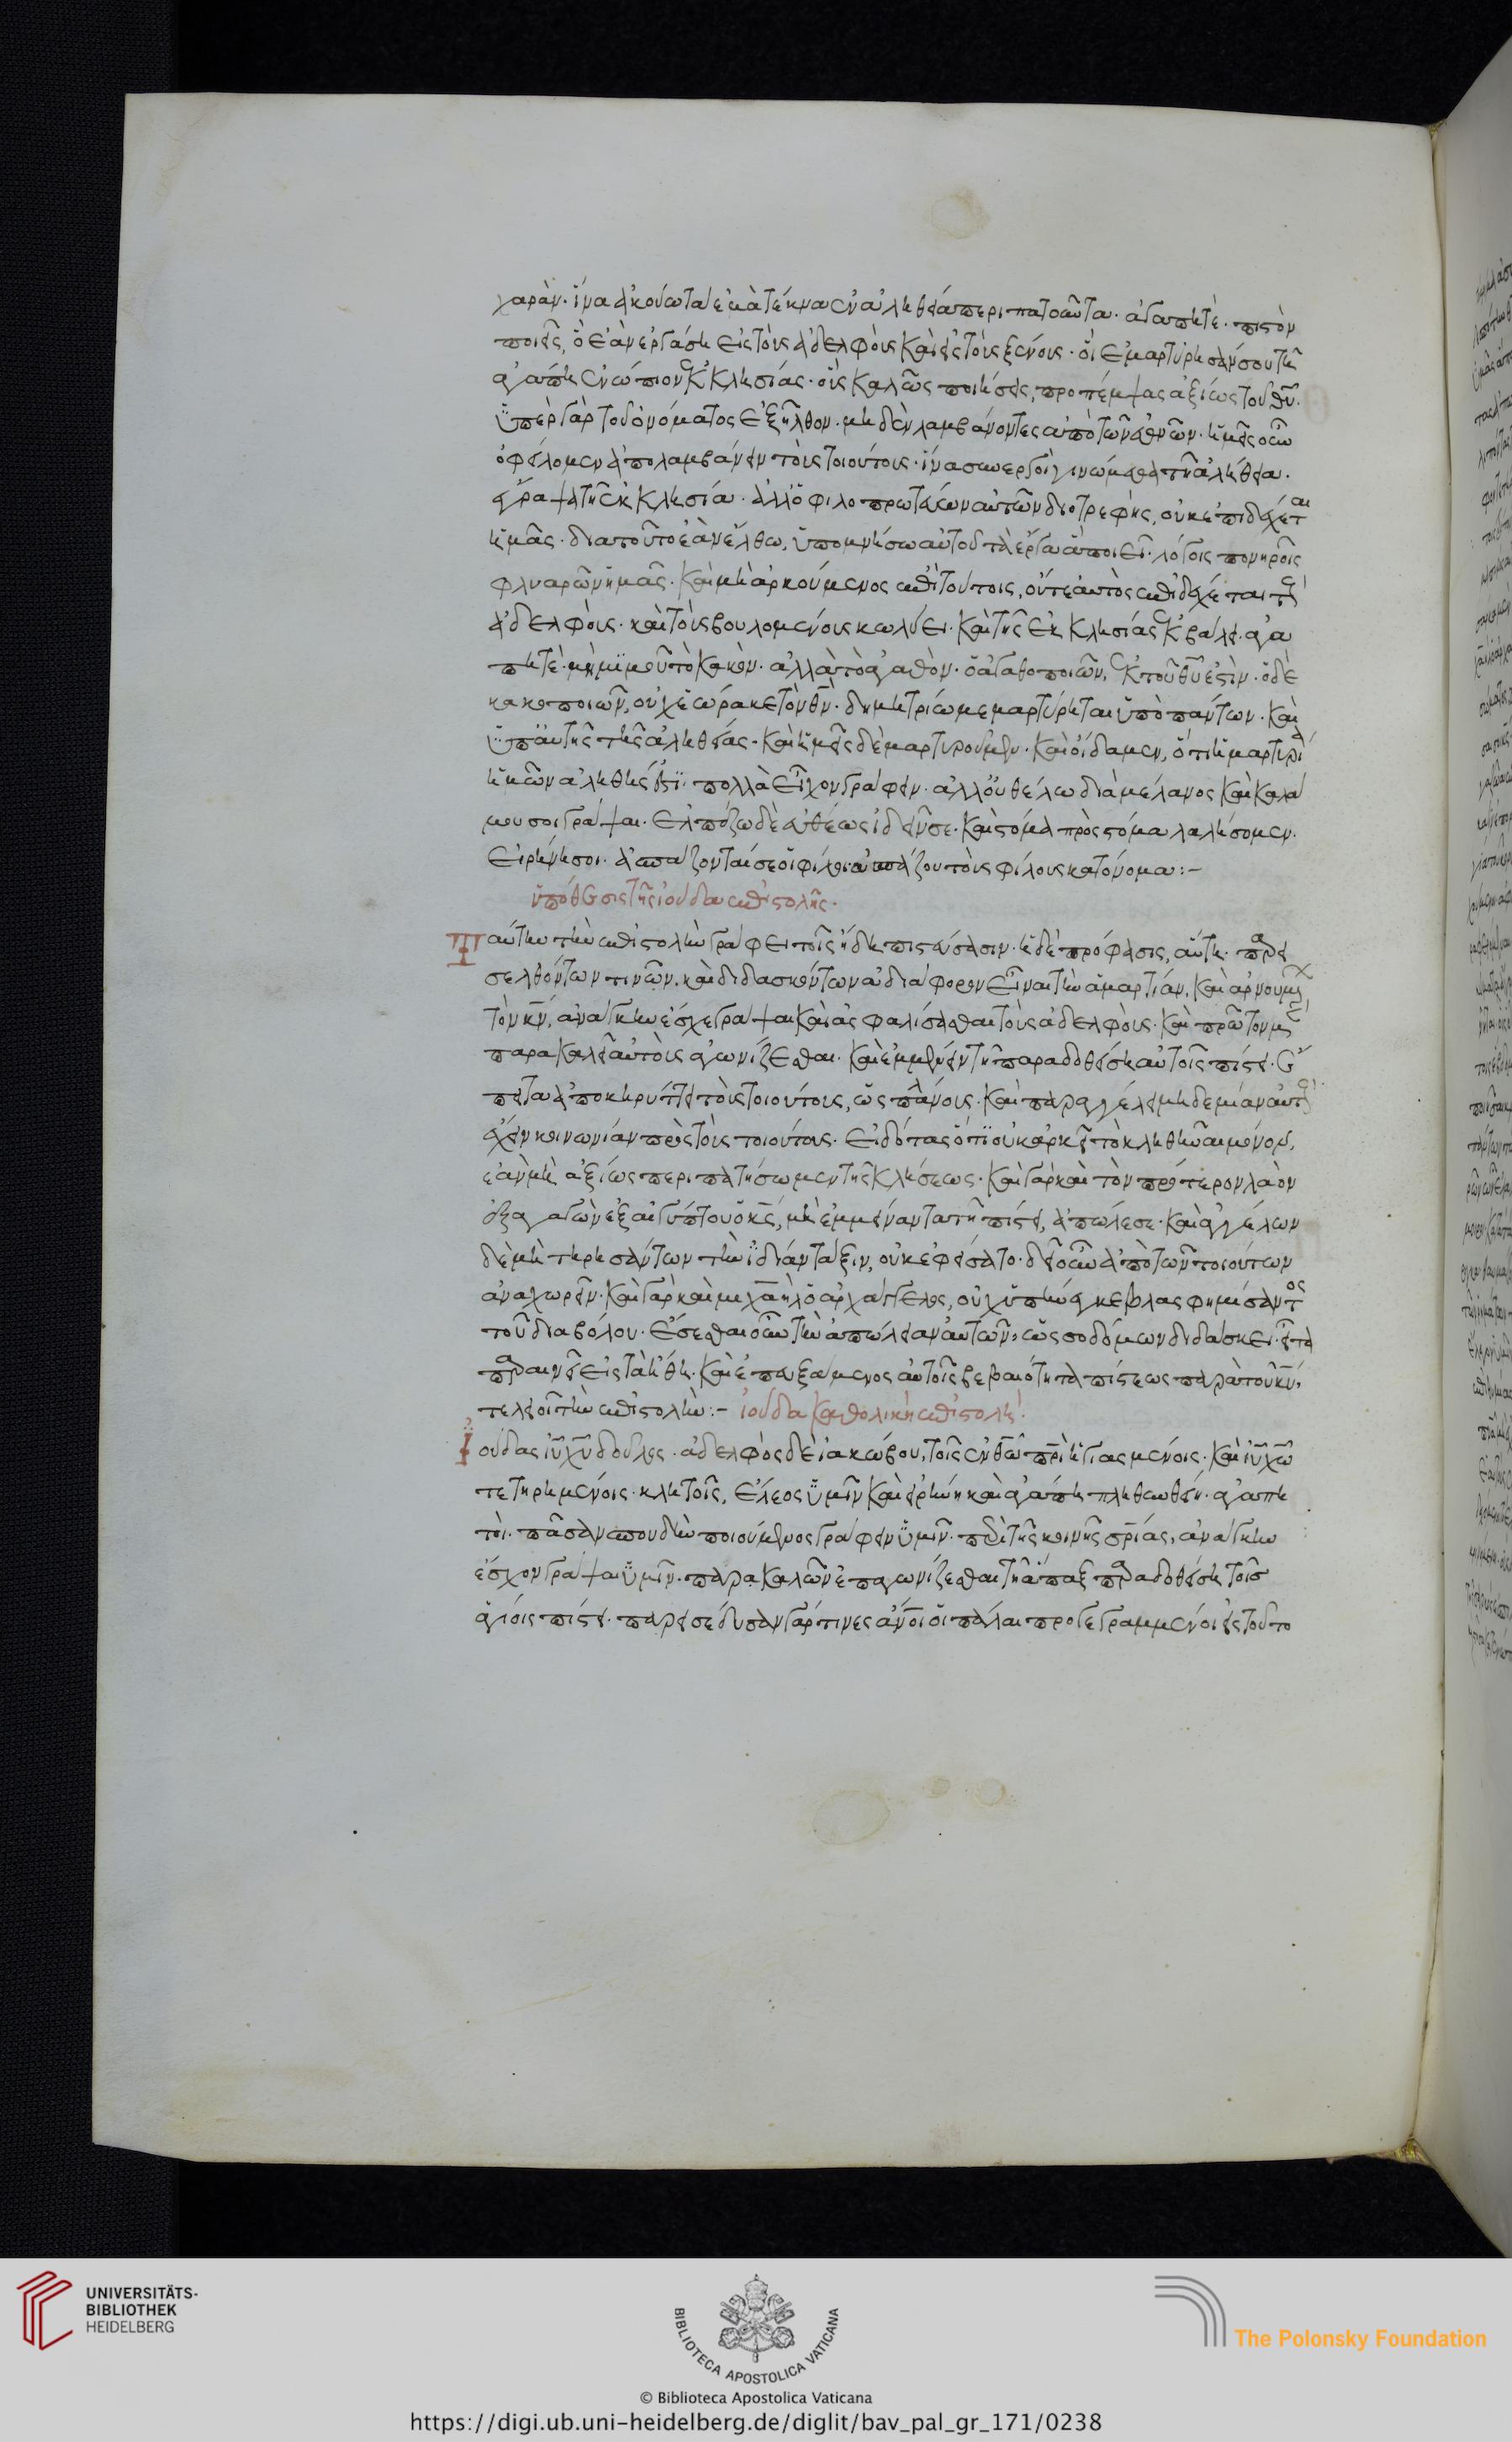 χαρὰν. ἵνα ἀκούω τὰ ἐμὰ τέκνα ἐν ἀληθεία περιπατοῦντα. ἀγαπητὲ. πιστὸν
ποιεῖς, ὃ ἐὰν ἐργάση εἰς τοὺς ἀδελφοὺς καὶ εἰς τοὺς ξένους. οἳ ἐμαρτύρησάν σου τῆ
ἀγάπη ἐνώπιον ἐκκλησίας. οὓς καλῶς ποιήσεις, προπέμψας ἀξίως τοῦ θῦ.
ὑπὲρ γὰρ τοῦ ὀνόματος ἐξῆλθον. μηδὲν λαμβάνοντες ἀπὸ τῶν ἐθνῶν. ἡμεῖς οὖν
ὀφείλομεν ἀπολαμβάνειν τοὺς τοιούτους. ἵνα συνεργοὶ γινώμεθα τῆ ἀληθεία.
ἔγραψα τῆ ἐκκλησία. ἀλλ' ὁ φιλοπρωτεύων αὐτῶν διοτρεφὴς, οὐκ ἐπιδέχεται
ἡμᾶς. διατοῦτο ἐὰν ἔλθω, ὑπομνήσω αὐτοῦ τὰ ἔργα ἃ ποιεῖ. λόγοις πονηροῖς
φλυαρῶν ἡμᾶς. καὶ μὴ ἀρκούμενος ἐπὶ τούτοις, οὔτε αὐτὸς ἐπιδέχεται τοὺς
ἀδελφοὺς. καὶ τοὺς βουλομένους κωλύει. καὶ τῆς ἐκκλησίας ἐκβάλει. ἀγα
πητὲ. μὴ μιμοῦ τὸ κακὸν. ἀλλὰ τὸ ἀγαθὸν. ὁ ἀγαθοποιῶν, ἐκ τοῦ θῦ ἐστὶν. ὁ δὲ
κακοποιῶν, οὐχ ἑώρακε τὸν θν. δημητρίω μεμαρτύρηται ὑπὸ πάντων. καὶ
ὑπ' αὐτῆς τῆς ἀληθείας. καὶ ἡμεῖς δὲ μαρτυροῦμεν. καὶ οἴδαμεν, ὅτι ἡ μαρτυρία
ἡμῶν ἀληθής ἐστι. πολλὰ εἶχον γράφειν. ἀλλ' οὐ θέλω διὰ μέλανος καὶ καλά
μου σοι γράψαι. ἐλπίζω δὲ εὐθέως ἰδεῖν σε. καὶ στόμα πρὸς στόμα λαλήσομεν.
εἰρήνη σοι. ἀσπάζονταί σε οἱ φίλοι. ἀσπάζου τοὺς φίλους κατ' όνομα:–
ὑπόθεσις τῆς ἰούδα ἐπιστολῆς.
Ταύτην τὴν ἐπιστολὴν γράφει τοῖς ἤδη πιστεύσασιν. ἡ δὲ πρόφασις, αὕτη. παρει
σελθόντων τινῶν. καὶ διδασκόντων ἀδιάφορον εἶναι τὴν ἁμαρτίαν. καὶ ἀρνουμένων
τὸν κν, ἀνάγκην ἔσχε γράψαι καὶ ἀσφαλίσασθαι τοὺς ἀδελφοὺς. καὶ πρῶτον μὲν
παρακαλεῖ αὐτοὺς ἀγωνίζεσθαι. καὶ ἐμμένειν τῆ παραδοθείση αὐτοῖς πίστει. ἔ
πειτα ἀποκηρύττει τοὺς τοιούτους, ὡς πλάνους. καὶ παραγγέλει μηδεμίαν αὐτοὺς
ἔχειν κοινωνίαν πρὸς τοὺς τοιούτους. εἰδότας ὅτι οὐκ ἀρκεῖ τὸ κληθῆναι μόνον,
ἐὰν μὴ ἀξίως περιπατήσωμεν τῆς κλήσεως. καὶ γὰρ καὶ τὸν πρότερον λαὸν
ἐξαγαγὼν ἐξ αἰγύπτου ὁ κς, μὴ ἐμμείναντα τῆ πίστει, ἀπώλεσε. καὶ ἀγγέλων
δὲ μὴ τηρησάντων τὴν ἰδίαν τάξιν, οὐκ ἐφείσατο. δεῖ οὖν ἀπὸ τῶν τοιούτων
ἀναχωρεῖν. καὶ γὰρ καὶ μιχαὴλ ὁ ἀρχάγγελος, οὐχ ὑπήνεγκε βλασφημήσαντος
τοῦ διαβόλου. ἔσεσθαι οὖν τὴν ἀπώλειαν αὐτῶν, ὡς σοδόμων διδάσκει. εἶτα
παραινεῖ εἰς τὰ ἤθη. καὶ ἐπευξάμενος αὐτοῖς βεβαιότητα πίστεως παρὰ τοῦ κυ,
τελειοῖ τὴν ἐπιστολὴν:– ἰούδα καθολικὴ ἐπιστολὴ.
Ἰούδας ιυ χυ δοῦλος. ἀδελφὸς δὲ ἰακώβου. τοῖς ἐν θω πρι ἡγιασμένοις. καὶ ιυ χω
τετηρημένοις. κλητοῖς, ἔλεος ὑμῖν καὶ εἰρήνη καὶ ἀγάπη πληθυνθείη. ἀγαπη
τοὶ. πᾶσαν σπουδὴν ποιούμενος γράφειν ὑμῖν. περὶ τῆς κοινῆς σρίας, ἀνάγκην
ἔσχον γράψαι ὑμῖν. παρακαλῶν ἐπαγωνίζεσθαι τῆ ἅπαξ παραδοθείση τοῖς
ἁγίοις πίστει. παρεισέδυσαν γάρ τινες ἄνοι οἱ πάλαι προγεγραμμένοι εἰς τοῦτο
UNIVERSITÄTS-
BIBLIOTHEK
HEIDELBERG
BIBLIOTECA APOSTOLICA VATICANA
The Polonsky Foundation
© Biblioteca Apostolica Vaticana
https://digi.ub.uni-heidelberg.de/diglit/bav_pal_gr_171/0238